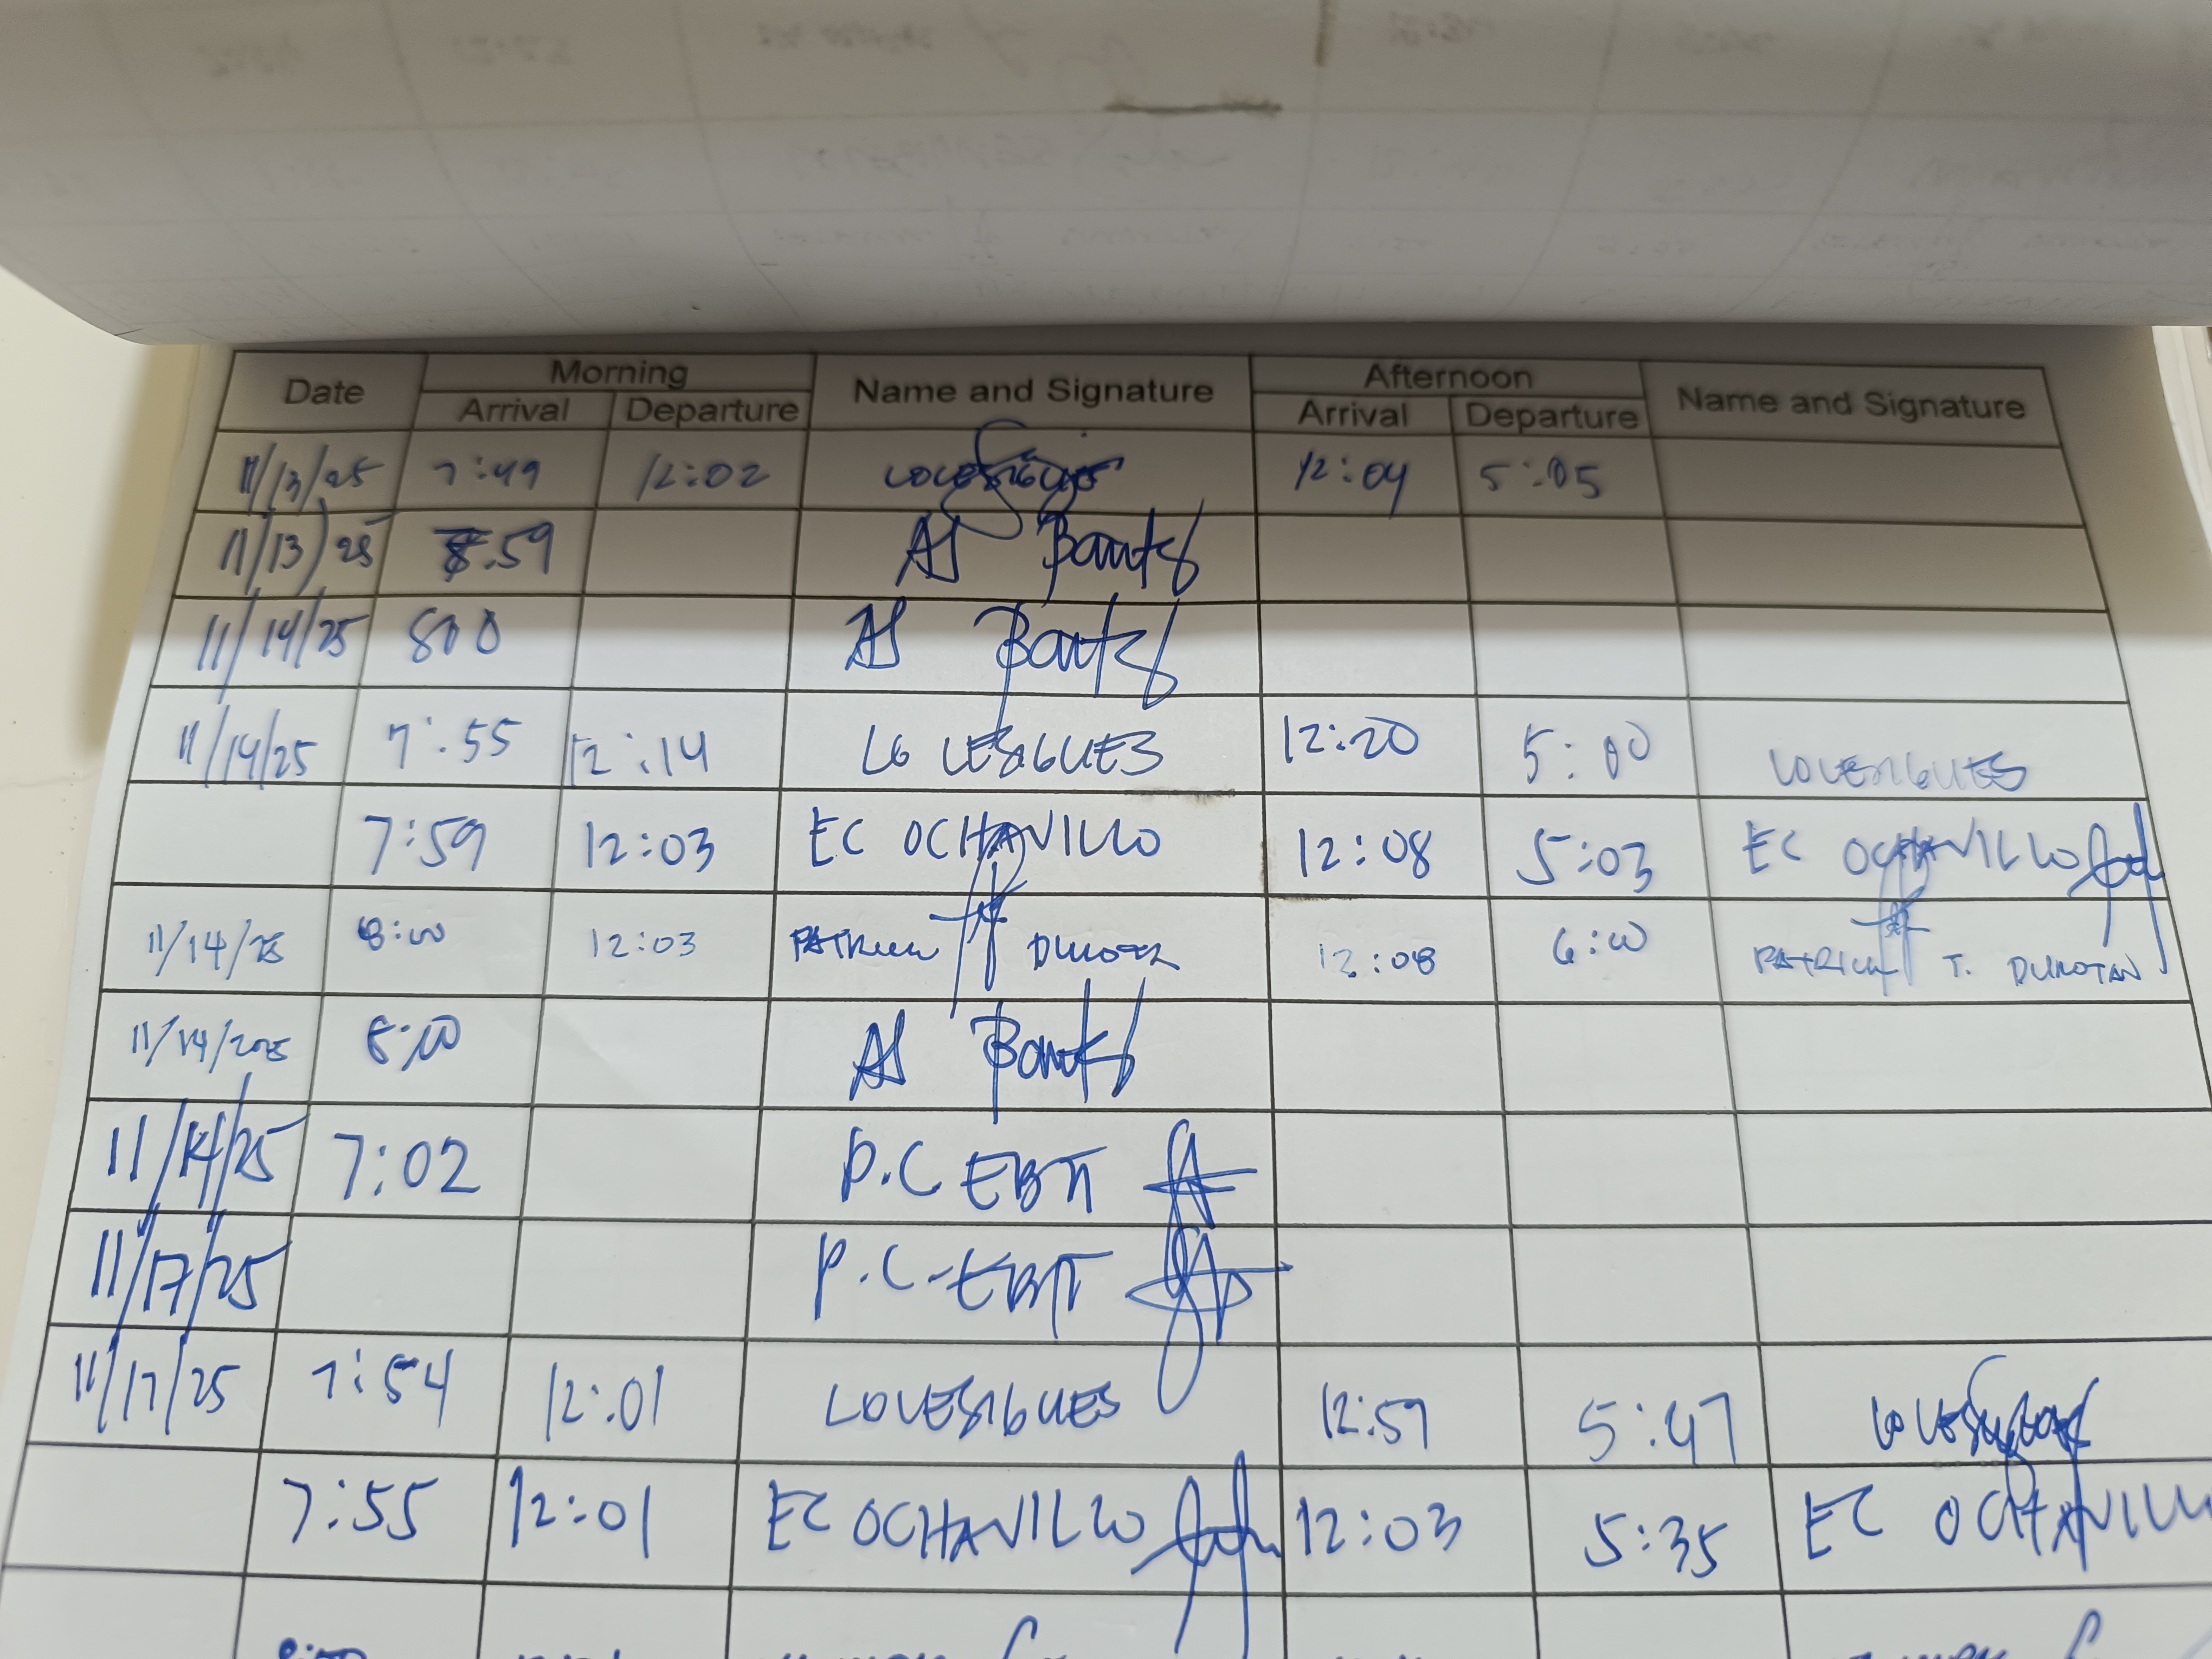 Date Morning Name and Signature Afternoon Name and Signature
Arrival Departure Arrival Departure
11/13/25 7:49 12:02 LOVESIGUES 12:04 5:05
11/13/25 8:59 AS
11/14/25 800 AS
11/14/25 7:55 12:14 LOVESIGUES 12:20 5:00 LOVESIGUES
7:59 12:03 EC OCHAVILLO 12:08 5:03 EC OCHAVILLO
11/14/25 8:00 12:03 PATRICK 12:08 6:00 PATRICK T. DUMOTAN
11/14/2025 8:00 AS
11/14/25 7:02 P.C EBTI
11/17/25 P.C-EBTI
11/17/25 7:54 12:01 LOVESIGUES 12:57 5:47
7:55 12:01 EC OCHAVILLO 12:03 5:35 EC OCHAVILLO